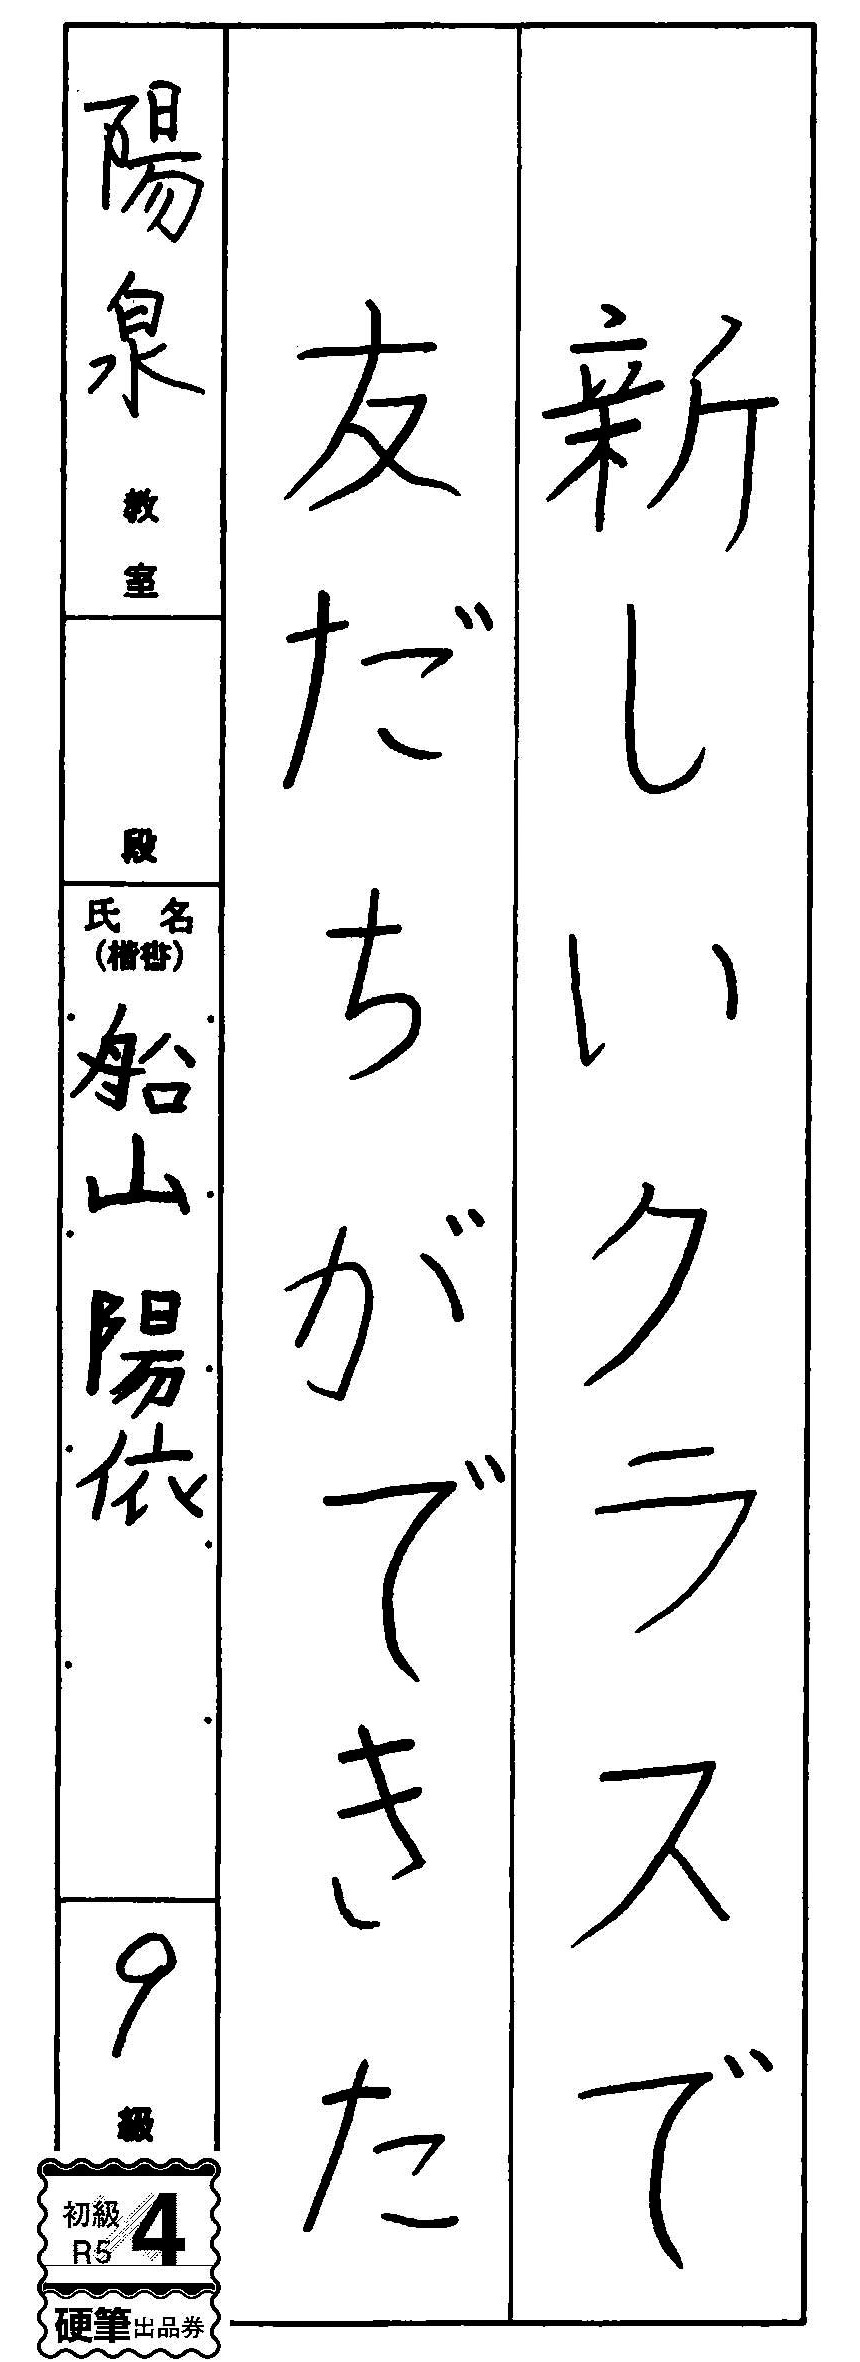 新しいクラスで
友だちができた
陽泉教室
段
氏名
(楷書)
船山陽依
9級
初級
R5
4
硬筆出品券